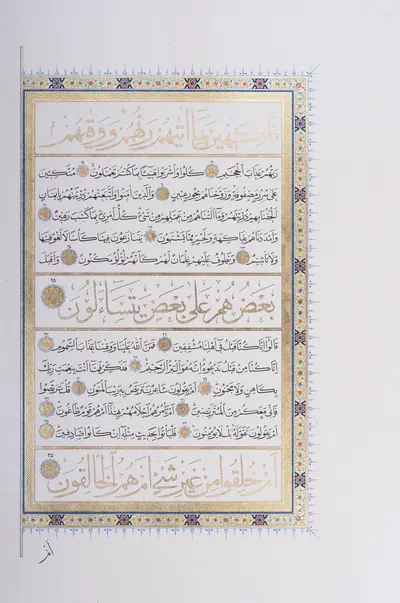 فَاكِهِينَ بِمَا آتَاهُمْ رَبُّهُمْ وَوَقَاهُمْ
رَبُّهُمْ عَذَابَ الْجَحِيمِ كُلُوا وَاشْرَبُوا هَنِيئًا بِمَا كُنْتُمْ تَعْمَلُونَ مُتَّكِئِينَ
عَلَى سُرُرٍ مَصْفُوفَةٍ وَزَوَّجْنَاهُمْ بِحُورٍ عِينٍ وَالَّذِينَ آمَنُوا وَاتَّبَعَتْهُمْ ذُرِّيَّتُهُمْ بِإِيمَانٍ
أَلْحَقْنَا بِهِمْ ذُرِّيَّتَهُمْ وَمَا أَلَتْنَاهُمْ مِنْ عَمَلِهِمْ مِنْ شَيْءٍ كُلُّ امْرِئٍ بِمَا كَسَبَ رَهِينٌ
وَأَمْدَدْنَاهُمْ بِفَاكِهَةٍ وَلَحْمٍ مِمَّا يَشْتَهُونَ يَتَنَازَعُونَ فِيهَا كَأْسًا لَا لَغْوٌ فِيهَا
وَلَا تَأْثِيمٌ وَيَطُوفُ عَلَيْهِمْ غِلْمَانٌ لَهُمْ كَأَنَّهُمْ لُؤْلُؤٌ مَكْنُونٌ وَأَقْبَلَ
بَعْضُهُمْ عَلَى بَعْضٍ يَتَسَاءَلُونَ
قَالُوا إِنَّا كُنَّا قَبْلُ فِي أَهْلِنَا مُشْفِقِينَ فَمَنَّ اللَّهُ عَلَيْنَا وَوَقَانَا عَذَابَ السَّمُومِ
إِنَّا كُنَّا مِنْ قَبْلُ نَدْعُوهُ إِنَّهُ هُوَ الْبَرُّ الرَّحِيمُ فَذَكِّرْ فَمَا أَنْتَ بِنِعْمَتِ رَبِّكَ
بِكَاهِنٍ وَلَا مَجْنُونٍ أَمْ يَقُولُونَ شَاعِرٌ نَتَرَبَّصُ بِهِ رَيْبَ الْمَنُونِ قُلْ تَرَبَّصُوا
فَإِنِّي مَعَكُمْ مِنَ الْمُتَرَبِّصِينَ أَمْ تَأْمُرُهُمْ أَحْلَامُهُمْ بِهَذَا أَمْ هُمْ قَوْمٌ طَاغُونَ
أَمْ يَقُولُونَ تَقَوَّلَهُ بَلْ لَا يُؤْمِنُونَ فَلْيَأْتُوا بِحَدِيثٍ مِثْلِهِ إِنْ كَانُوا صَادِقِينَ
أَمْ خُلِقُوا مِنْ غَيْرِ شَيْءٍ أَمْ هُمُ الْخَالِقُونَ
أم